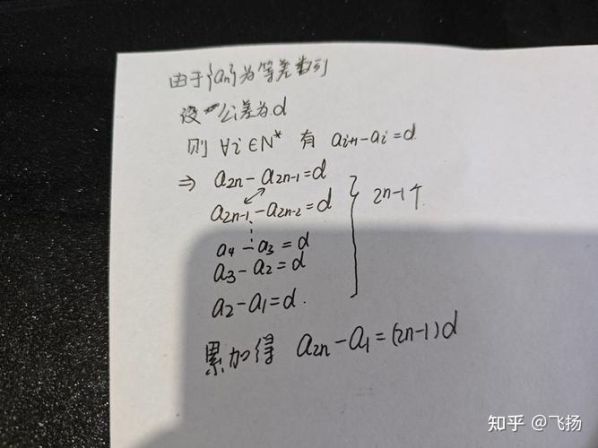 由于{an}为等差数列
设公差为d
则 ∀i∈N* 有 ai+1-ai=d
⇒ a2n-a2n-1=d
a2n-1-a2n-2=d
2n-1个
⋮
a4-a3=d
a3-a2=d
a2-a1=d.
累加得 a2n-a1=(2n-1)d
知乎 @飞扬